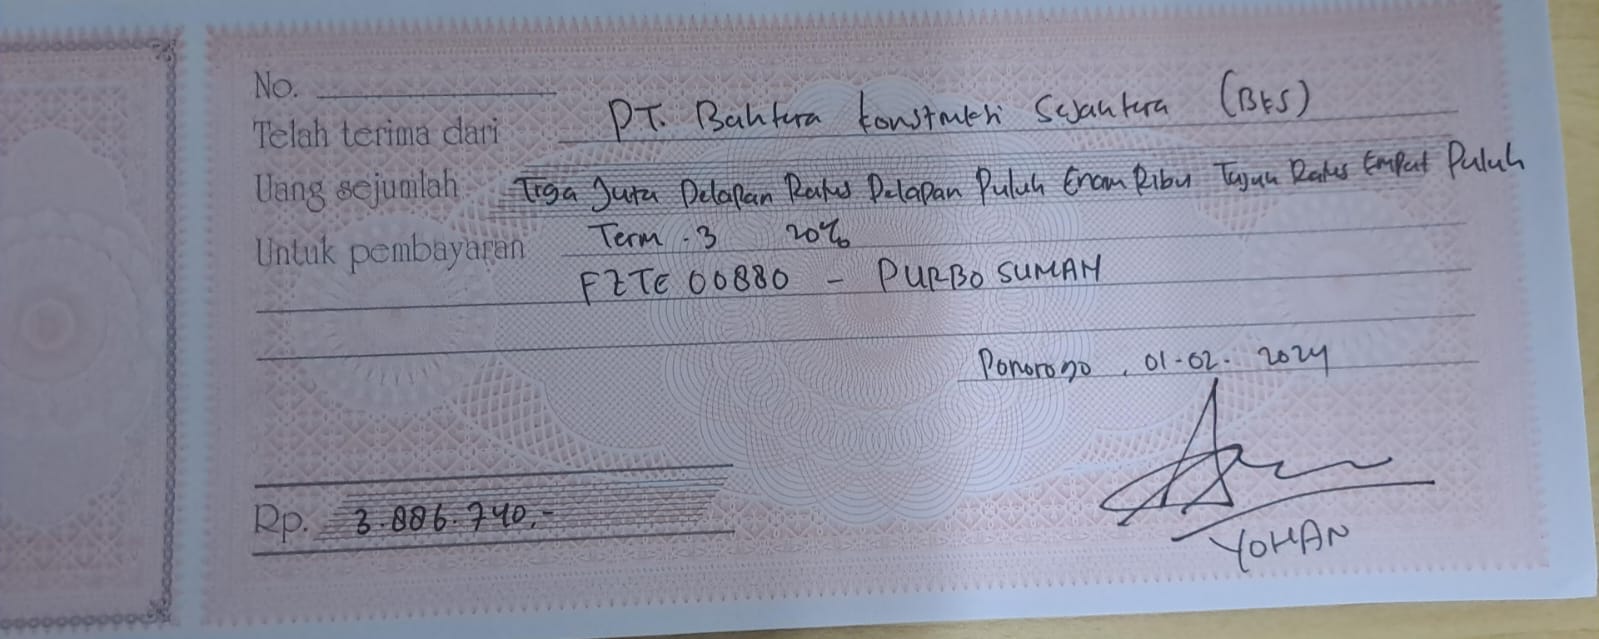 No.
Telah terima dari PT. Bahtera Konstruksi Sejahtera (BKS)
Uang sejumlah Tiga Juta Delapan Ratus Delapan Puluh Enam Ribu Tujuh Ratus Empat Puluh
Untuk pembayaran Term . 3 20%
FZTE 00880 - PURBO SUMAN
Ponorogo , 01-02- 2024
Rp. 3.886.740.-
YOHAN